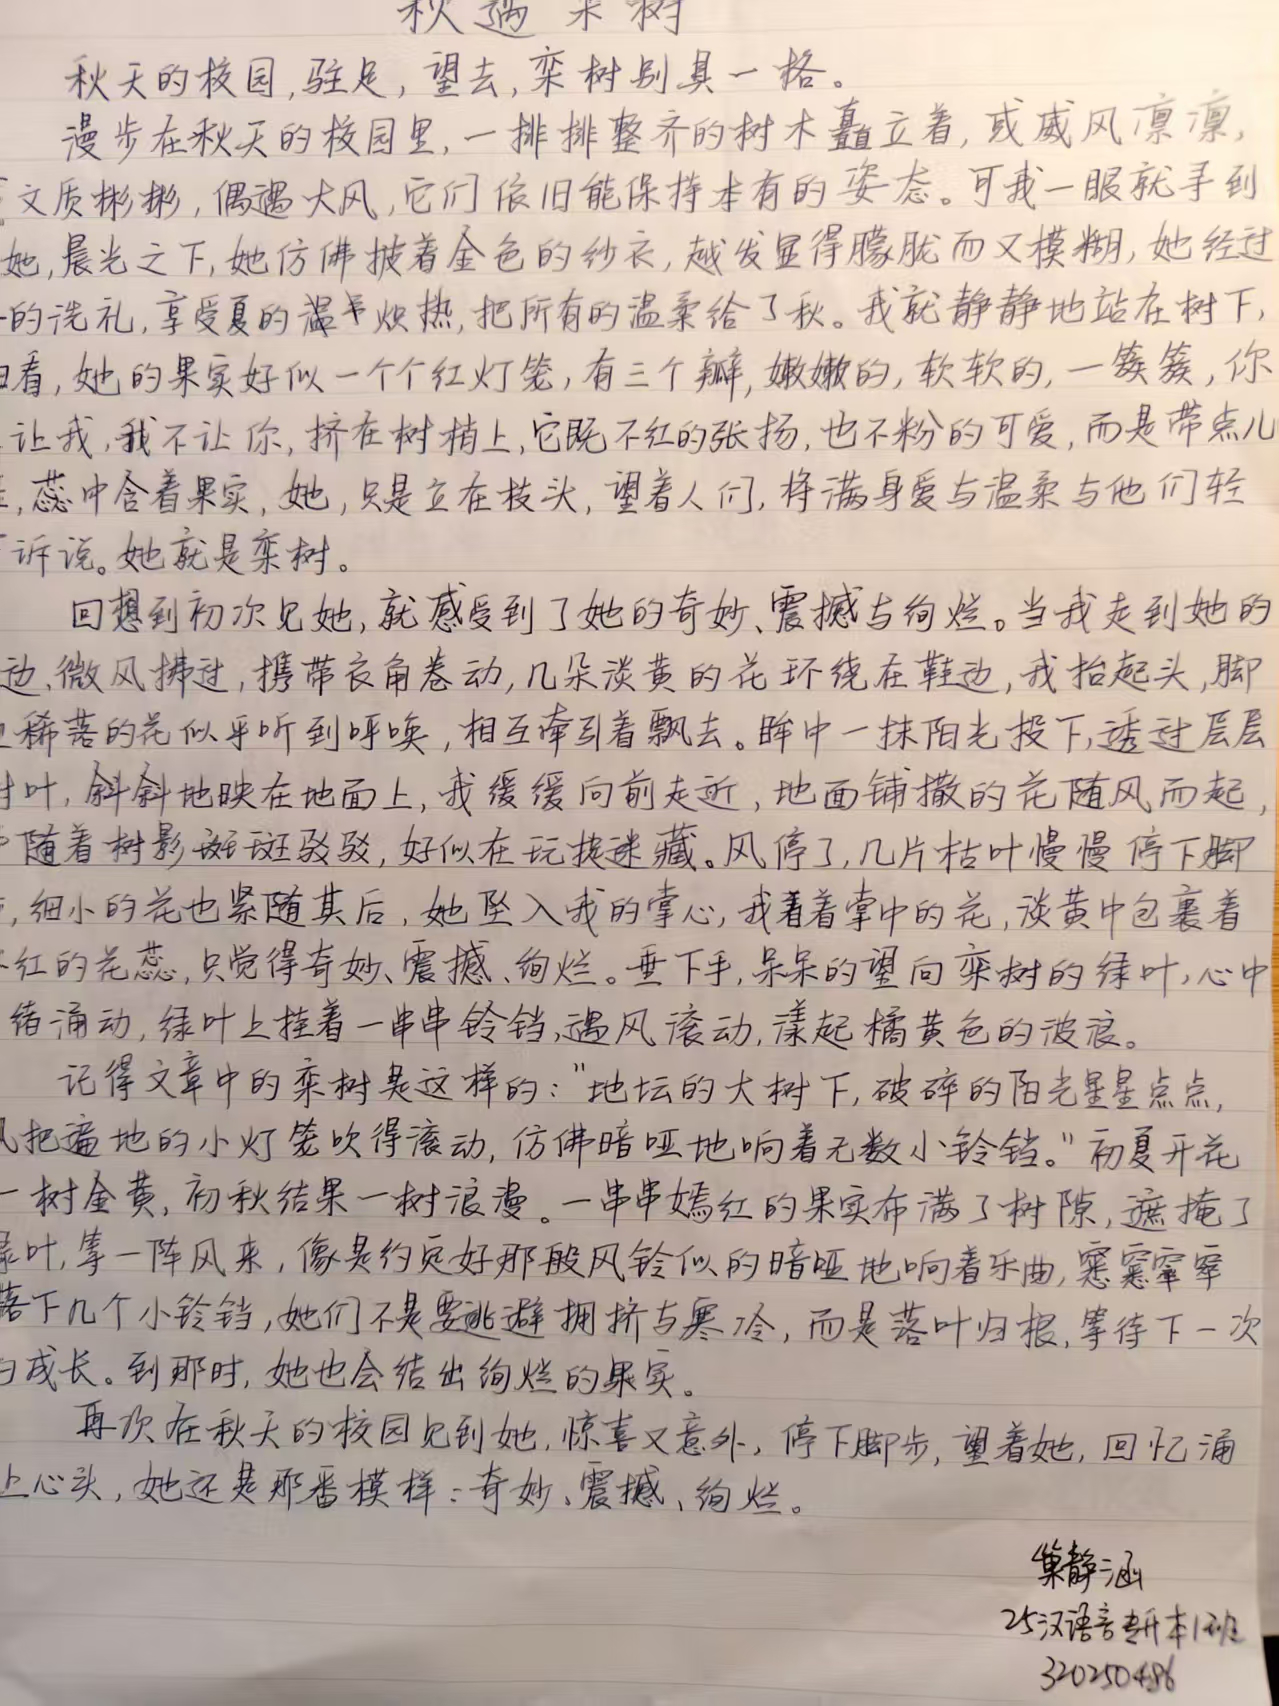 秋遇栾树
秋天的校园,驻足,望去,栾树别具一格。
漫步在秋天的校园里,一排排整齐的树木矗立着,或威风凛凛,
文质彬彬,偶遇大风,它们依旧能保持本有的姿态。可我一眼就寻到
她,晨光之下,她仿佛披着金色的纱衣,越发显得朦胧而又模糊,她经过
的洗礼,享受夏的温 炽热,把所有的温柔给了秋。我就静静地站在树下,
看,她的果实好似一个个红灯笼,有三个瓣,嫩嫩的,软软的,一簇簇,你
让我,我不让你,挤在树梢上,它既不红的张扬,也不粉的可爱,而是带点儿
,蕊中含着果实,她,只是立在枝头,望着人们,将满身爱与温柔与他们轻
诉说。她就是栾树。
回想到初次见她,就感受到了她的奇妙、震撼与绚烂。当我走到她的
边,微风拂过,携带衣角卷动,几朵淡黄的花环绕在鞋边,我抬起头,脚
稀落的花似乎听到呼唤,相互牵引着飘去。眸中一抹阳光投下,透过层层
叶,斜斜地映在地面上,我缓缓向前走近,地面铺撒的花随风而起,
随着树影斑斑驳驳,好似在玩捉迷藏。风停了,几片枯叶慢慢停下脚
,细小的花也紧随其后,她坠入我的掌心,我看着掌中的花,淡黄中包裹着
红的花蕊,只觉得奇妙、震撼、绚烂。垂下手,呆呆的望向栾树的绿叶,心中
绪涌动,绿叶上挂着一串串铃铛,遇风滚动,漾起橘黄色的波浪。
记得文章中的栾树是这样的:"地坛的大树下,破碎的阳光星星点点,
风把遍地的小灯笼吹得滚动,仿佛暗哑地响着无数小铃铛。"初夏开花
一树金黄,初秋结果一树浪漫。一串串嫣红的果实布满了树隙,遮掩了
绿叶,等一阵风来,像是约定好那般风铃似的暗哑地响着乐曲,窸窸窣窣
落下几个小铃铛,她们不是要逃避拥挤与寒冷,而是落叶归根,等待下一次
的成长。到那时,她也会结出绚烂的果实。
再次在秋天的校园见到她,惊喜又意外,停下脚步,望着她,回忆涌
上心头,她还是那番模样:奇妙、震撼、绚烂。
静涵
25汉语言专升本1班
320250486